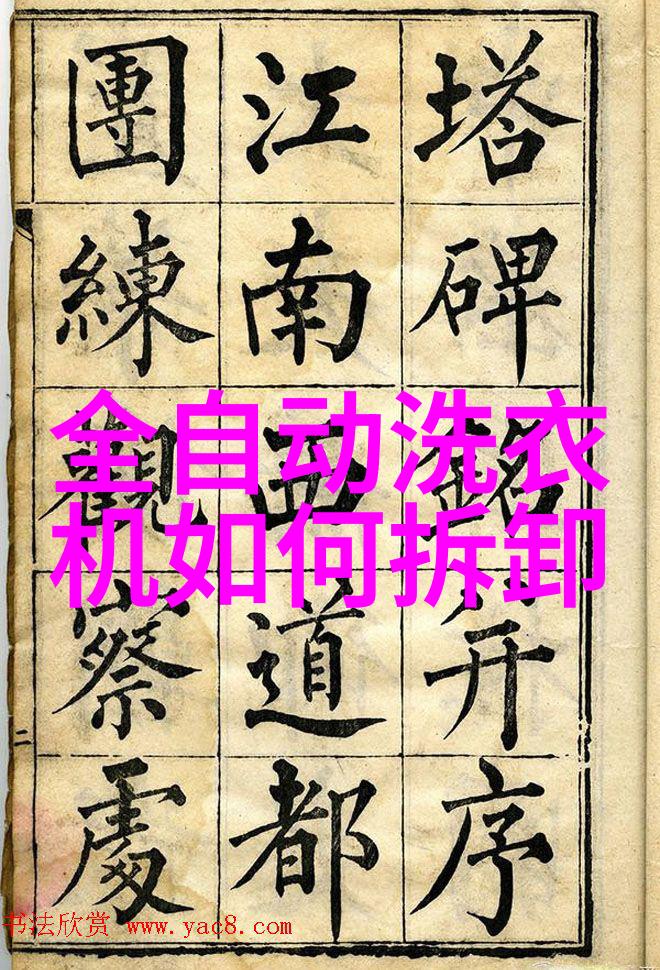 塔碑銘并序
江南西道都
團練觀察處
二
全自动洗衣
机如何拆卸
书法欣赏 www.yac8.com